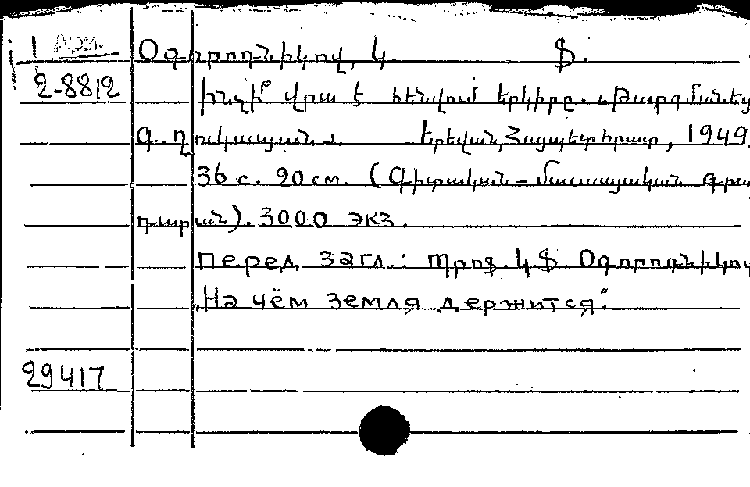 1 Арм. Օգորոդնիկով, Կ. Ֆ.
2-8812
Ինչի՞ վրա է հենվում երկիրը. Թարգմանեց
Գ. Ղուկասյան. Երևան, Հայպետհրատ, 1949.
36 с. 20 см. (Գիտական-մասսայական գրա
դարան). 3000 экз.
Перед загл.: Պրոֆ. Կ. Ֆ. Օգորոդնիկով
„На чём земля держится“.
29417